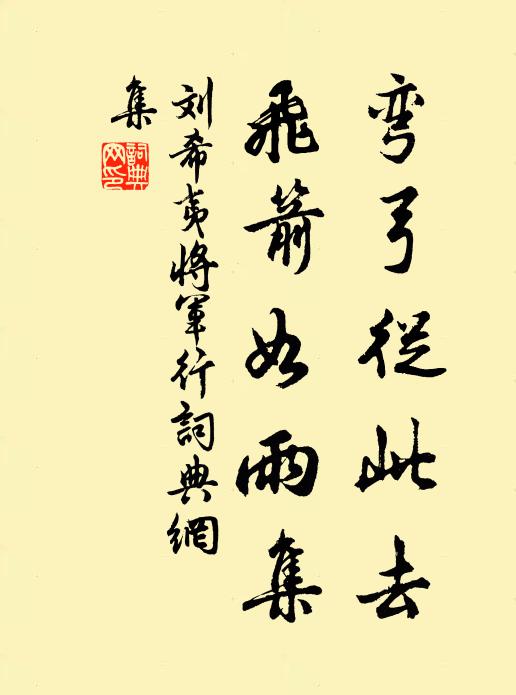 弯弓從此去
飛箭如雨集
刘希夷將軍行詞典網
集
詞典網印